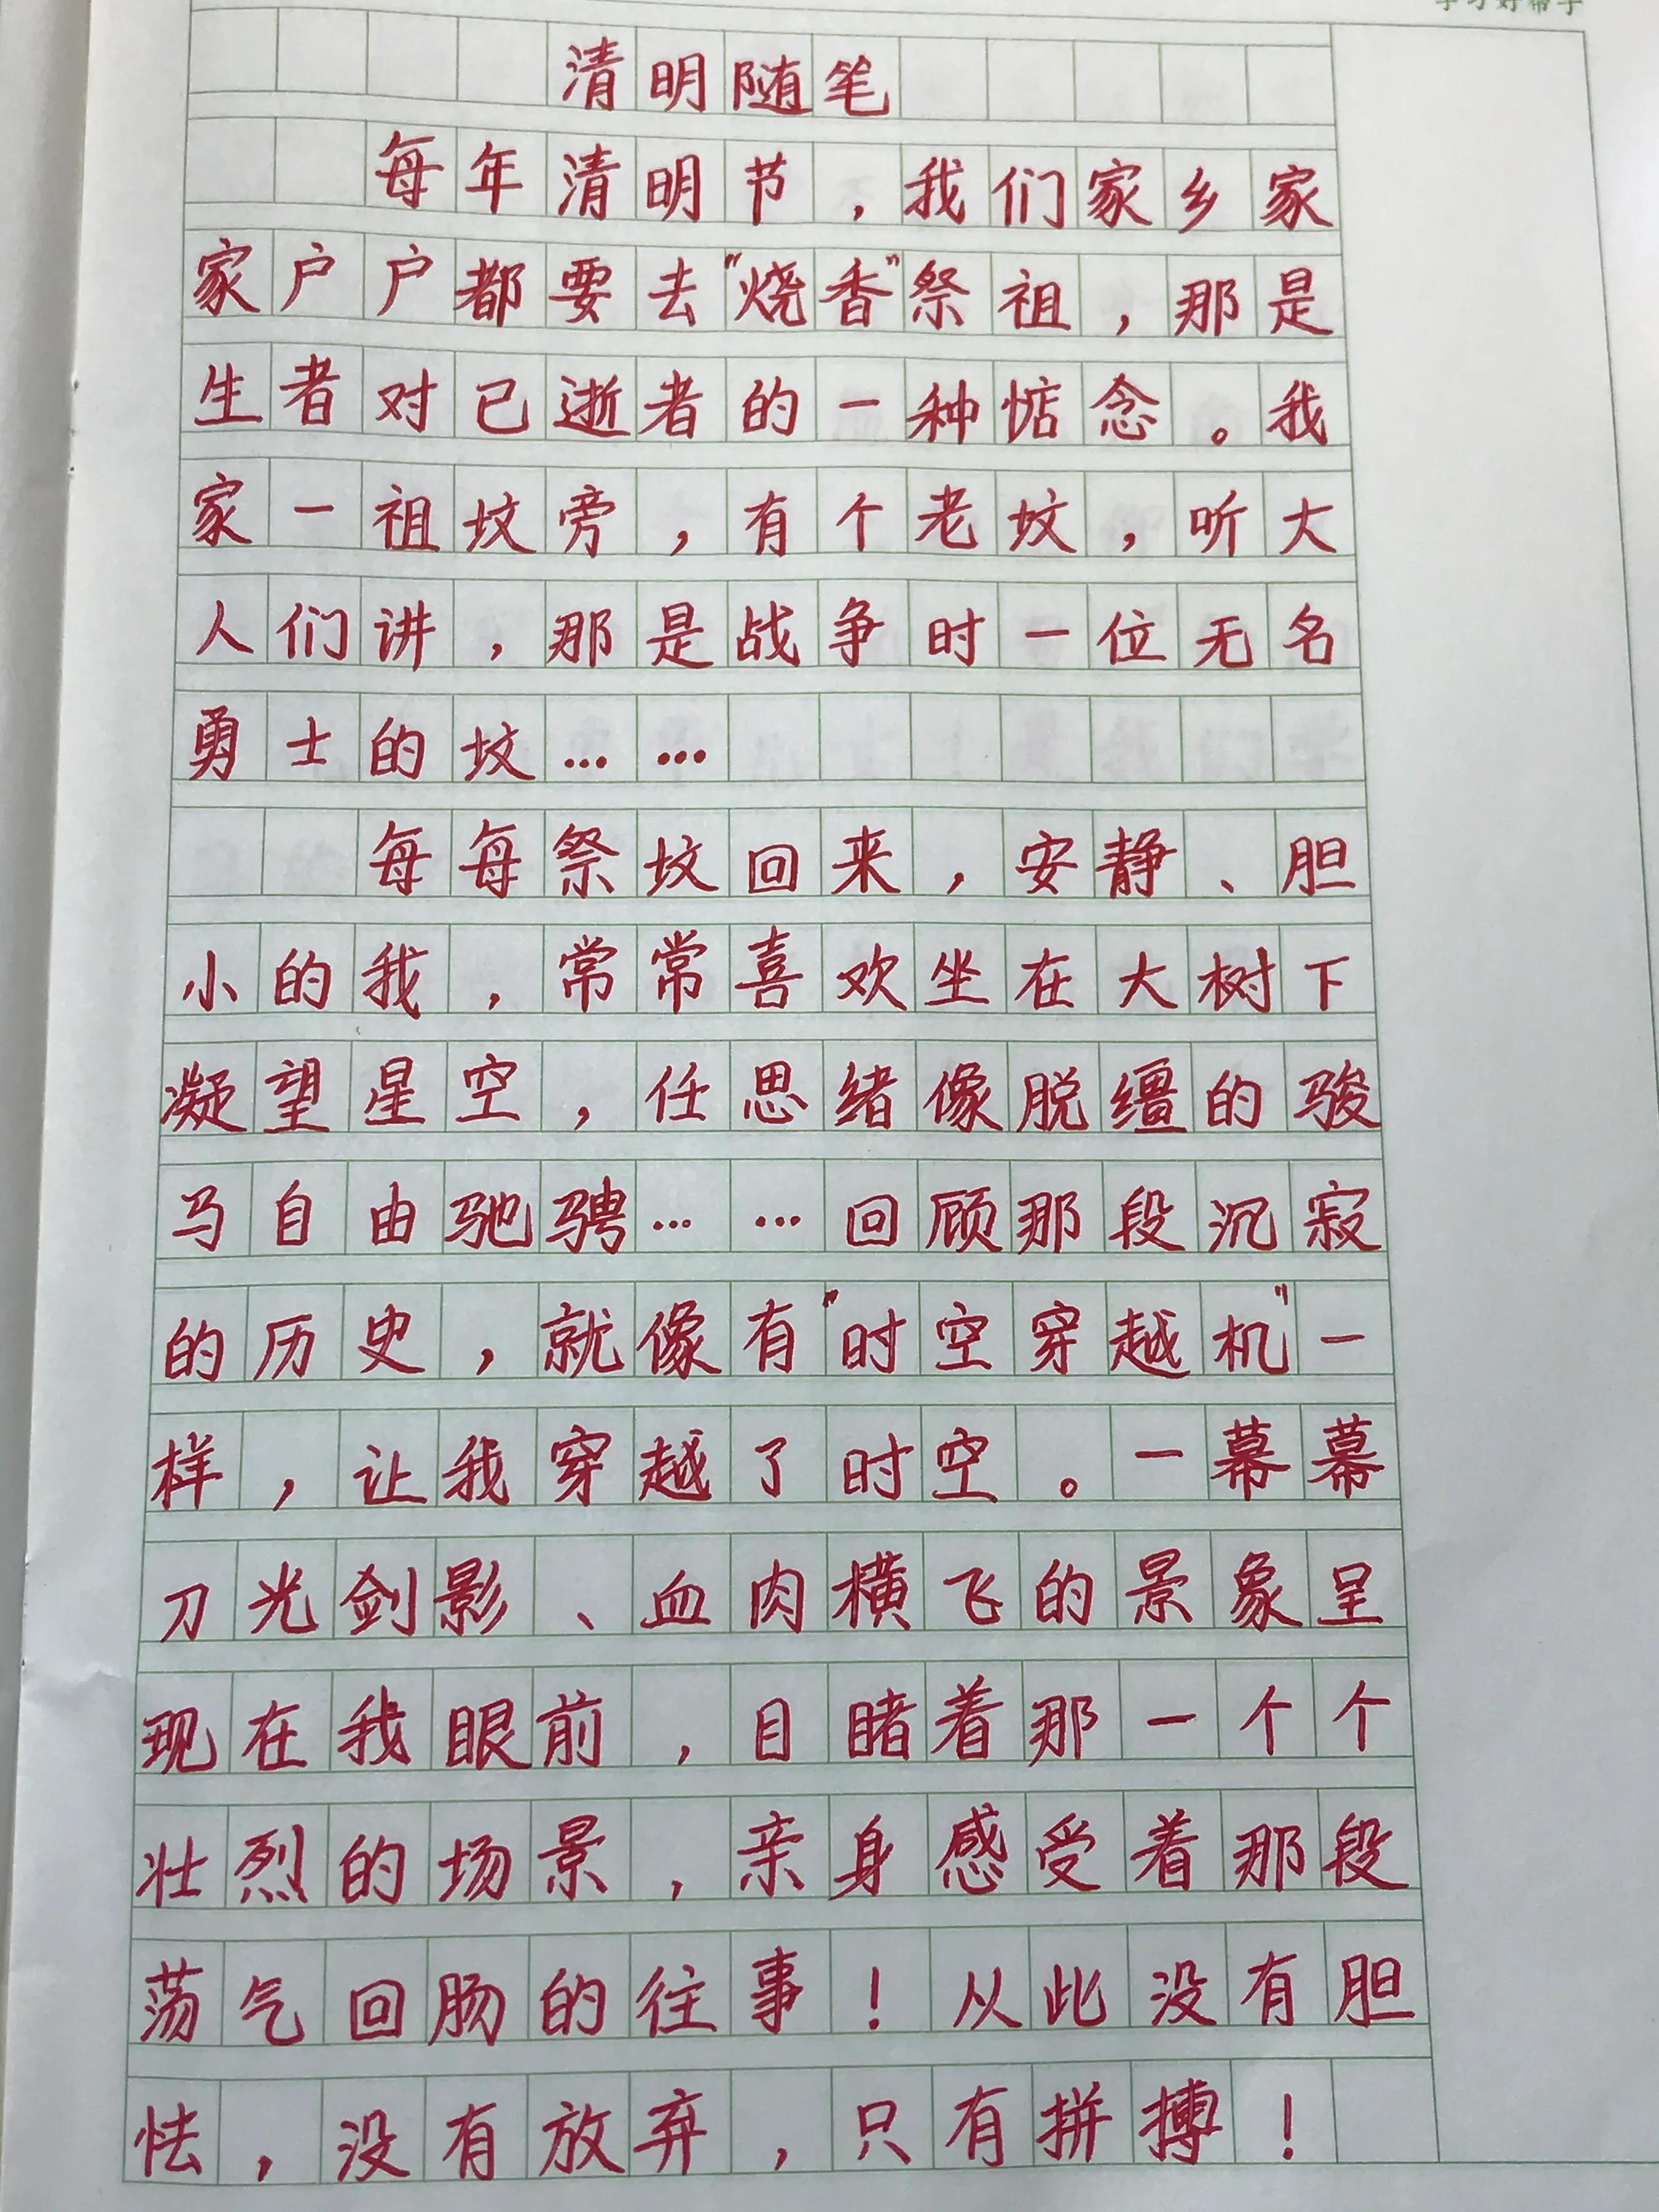 学习好帮手
清明随笔
每年清明节，我们家乡家
家户户都要去“烧香”祭祖，那是
生者对已逝者的一种惦念。我
家一祖坟旁，有个老坟，听大
人们讲，那是战争时一位无名
勇士的坟……
每每祭坟回来，安静、胆
小的我，常常喜欢坐在大树下
凝望星空，任思绪像脱缰的骏
马自由驰骋……回顾那段沉寂
的历史，就像有“时空穿越机”一
样，让我穿越了时空。一幕幕
刀光剑影、血肉横飞的景象呈
现在我眼前，目睹着那一个个
壮烈的场景，亲身感受着那段
荡气回肠的往事！从此没有胆
怯，没有放弃，只有拼搏！